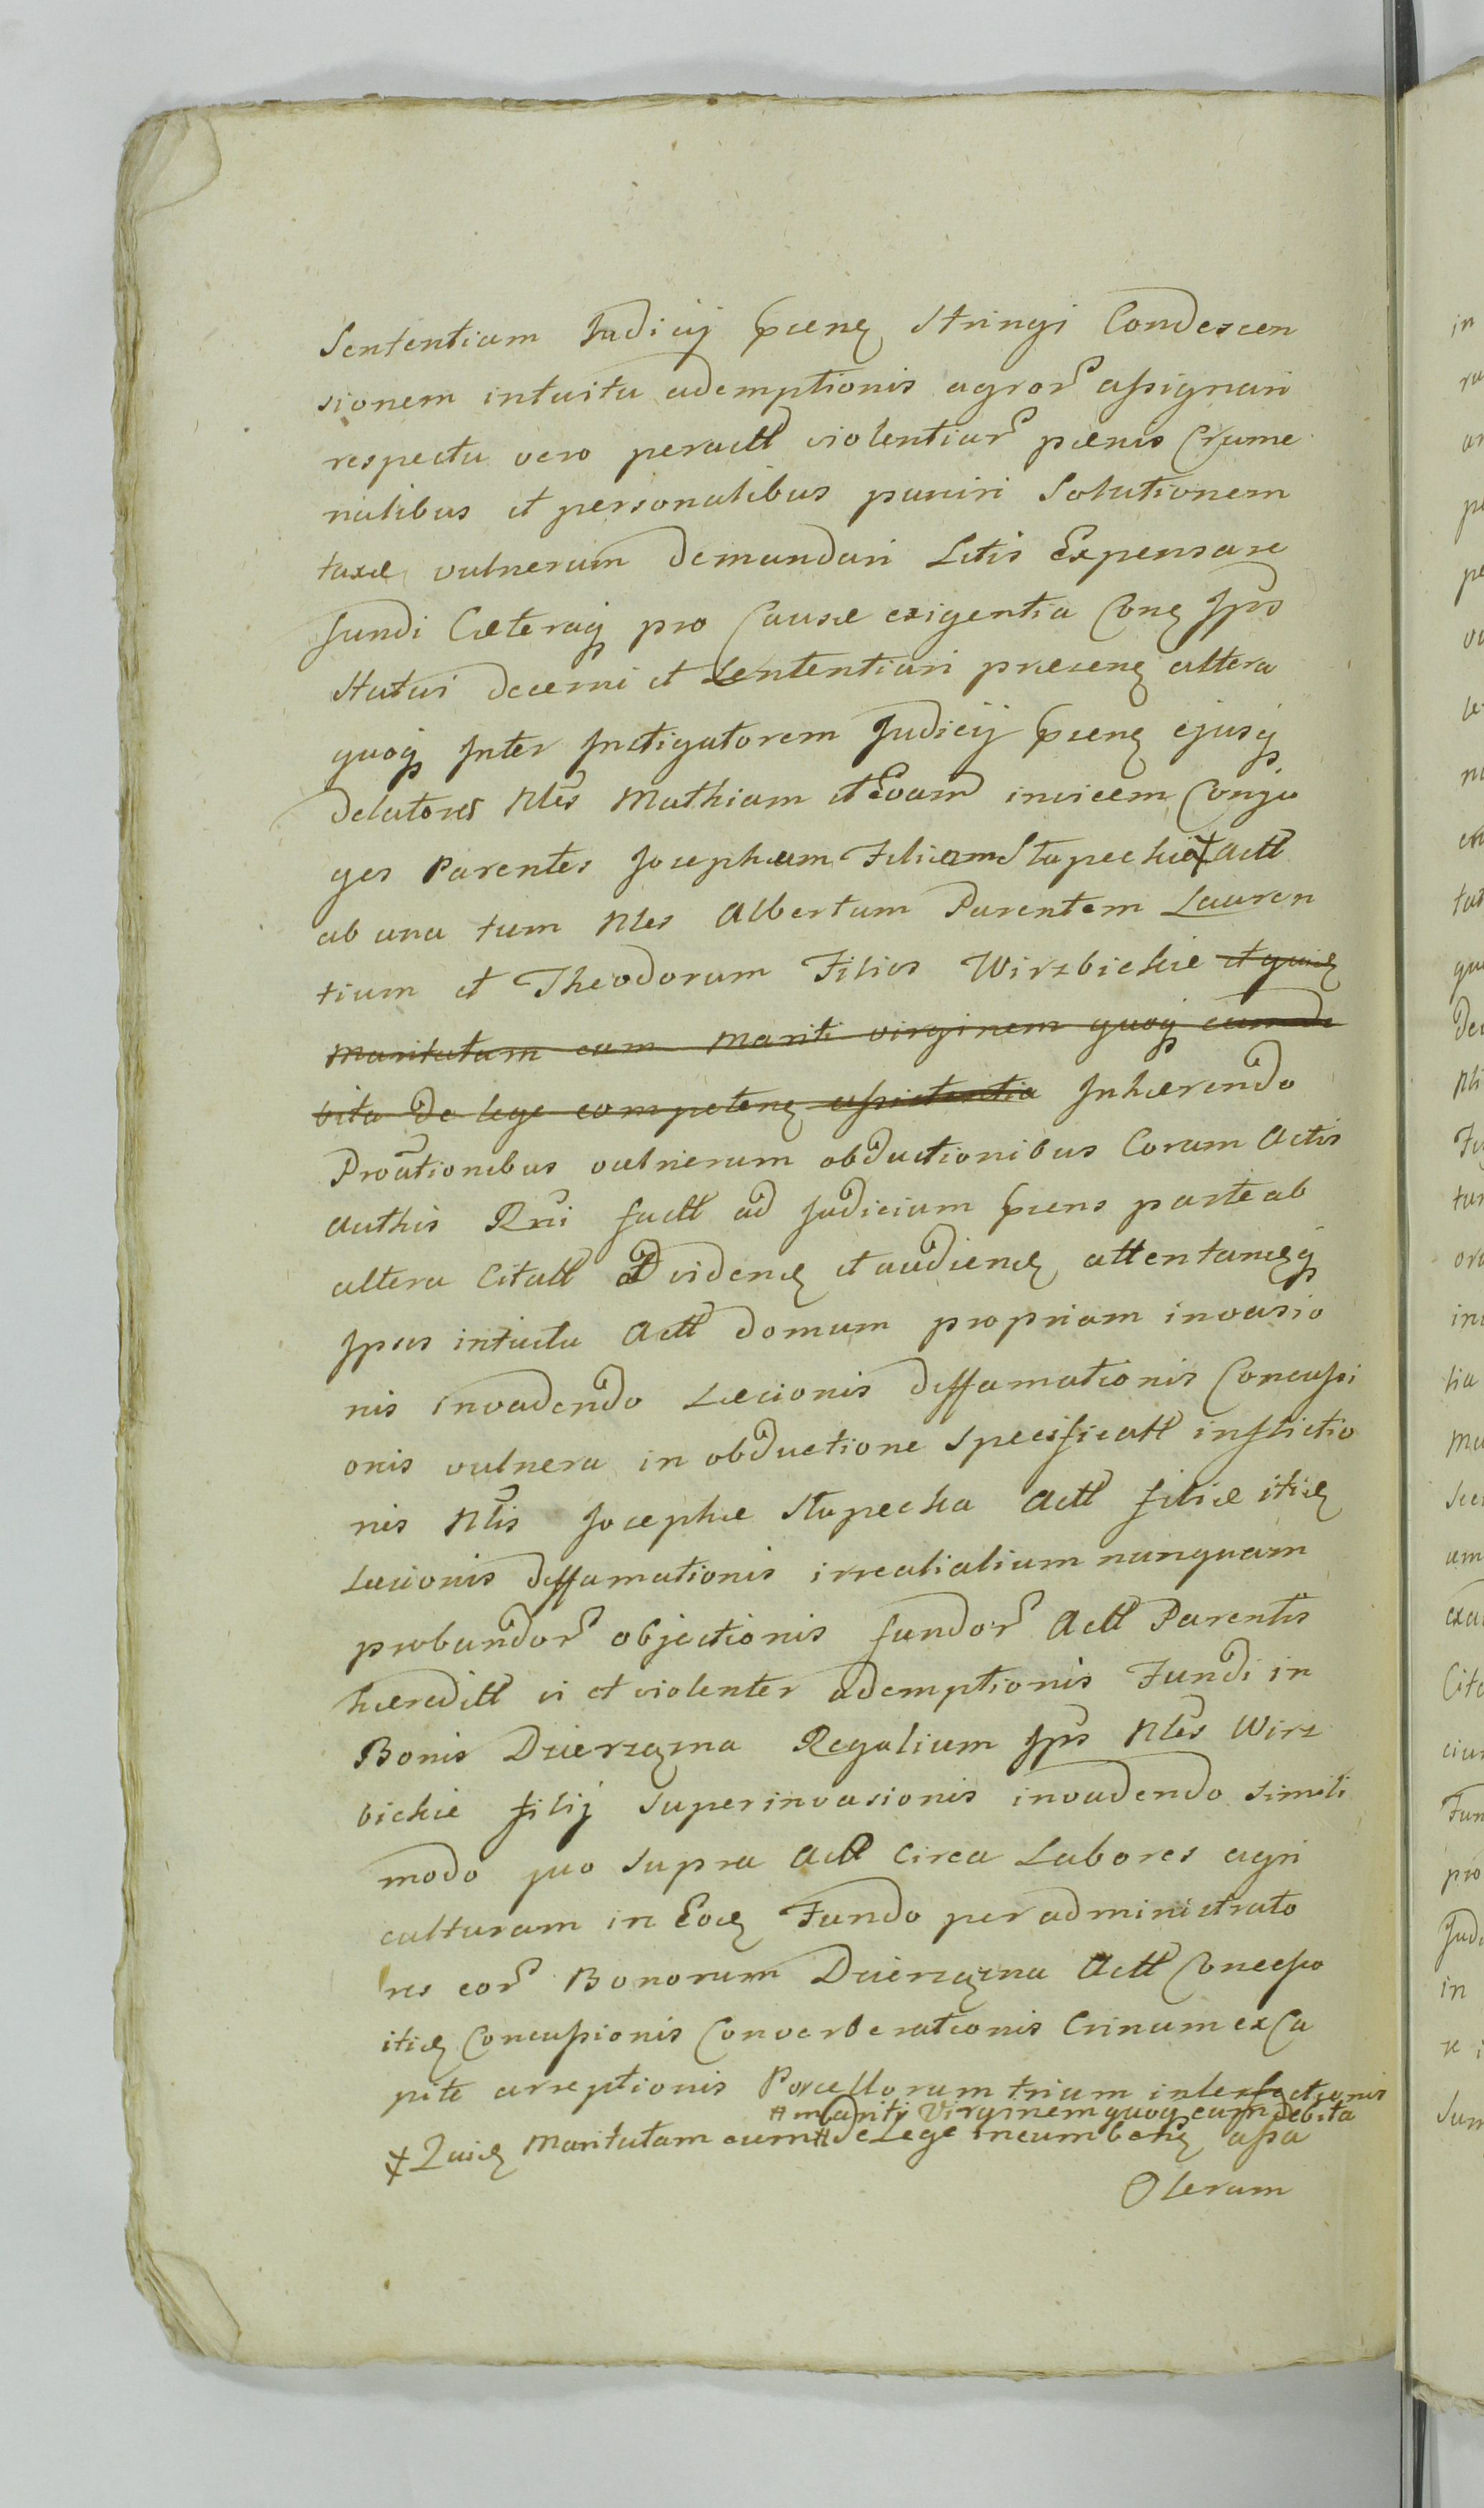 Sententiam Judicij pſenę Stringi Condescen
sionem intuitu ademptionis agror̃ aſsignari
respectu vero peractt violentiar̃ pænis Crume
nalibus et personalibus puniri Solutionem
taxæ vulnerum demandari Litis Expensas re
fundi Cæteraq pro Causæ exigentia Conę Jps
Statui decerni et Sententiari præsenę altera
quoq Inter Instigatorem Judicij pſenę ejusq
Delatores Nles Mathiam et Evam invicem Conju
ges Parentes Josepham Filiam Stapeckie ⨍ Actt
ab una tum Nles Albertum Parentem Lauren
tium et Theodorum Filios Wirzbickie et quidę
Maritatam cum Mariti virginem quoq cum de
bita de lege competenę aſsistentia Inhærendo
Proātionibus vulnerum obductionibus Coram Actis
Authis Rni factt ad Judicium pſens parte ab
altera Citatt Ad videndę et audiendę attentandęq
Jpsis intuitu Actt domum propriam invasio
nis invadendo Læsionis diffamationis Concuſsi
onis vulnera in obductione specificatt inflictio
nis Nlis Josephæ Stapecka Actt filiæ itidę
Læsionis diffamationis irrealialium nunquam
probandor̃ objectionis fundor̃ Actt Parentis
hæreditt vi et violenter ademptionis Fundi in
Bonis Dzierzązna Regalium Jps Nles Wirz
bickie filij superinvasionis invadendo simili
modo quo supra Actt Circa Labores agri
culturam in Eodę Fundo per administrato
res eor̃ Bonorum Dzierzązna Actt Conceſso
itidę Concuſsionis Converberationis Crinum ex Ca
pite arreptionis Porcellorum trium interfectionis
# mariti Virginem quoq cum debita
⨍ Quidę Maritatam cum # de Lege incumbenę aſsa
Olerum